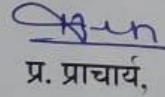 प्र. प्राचार्य,